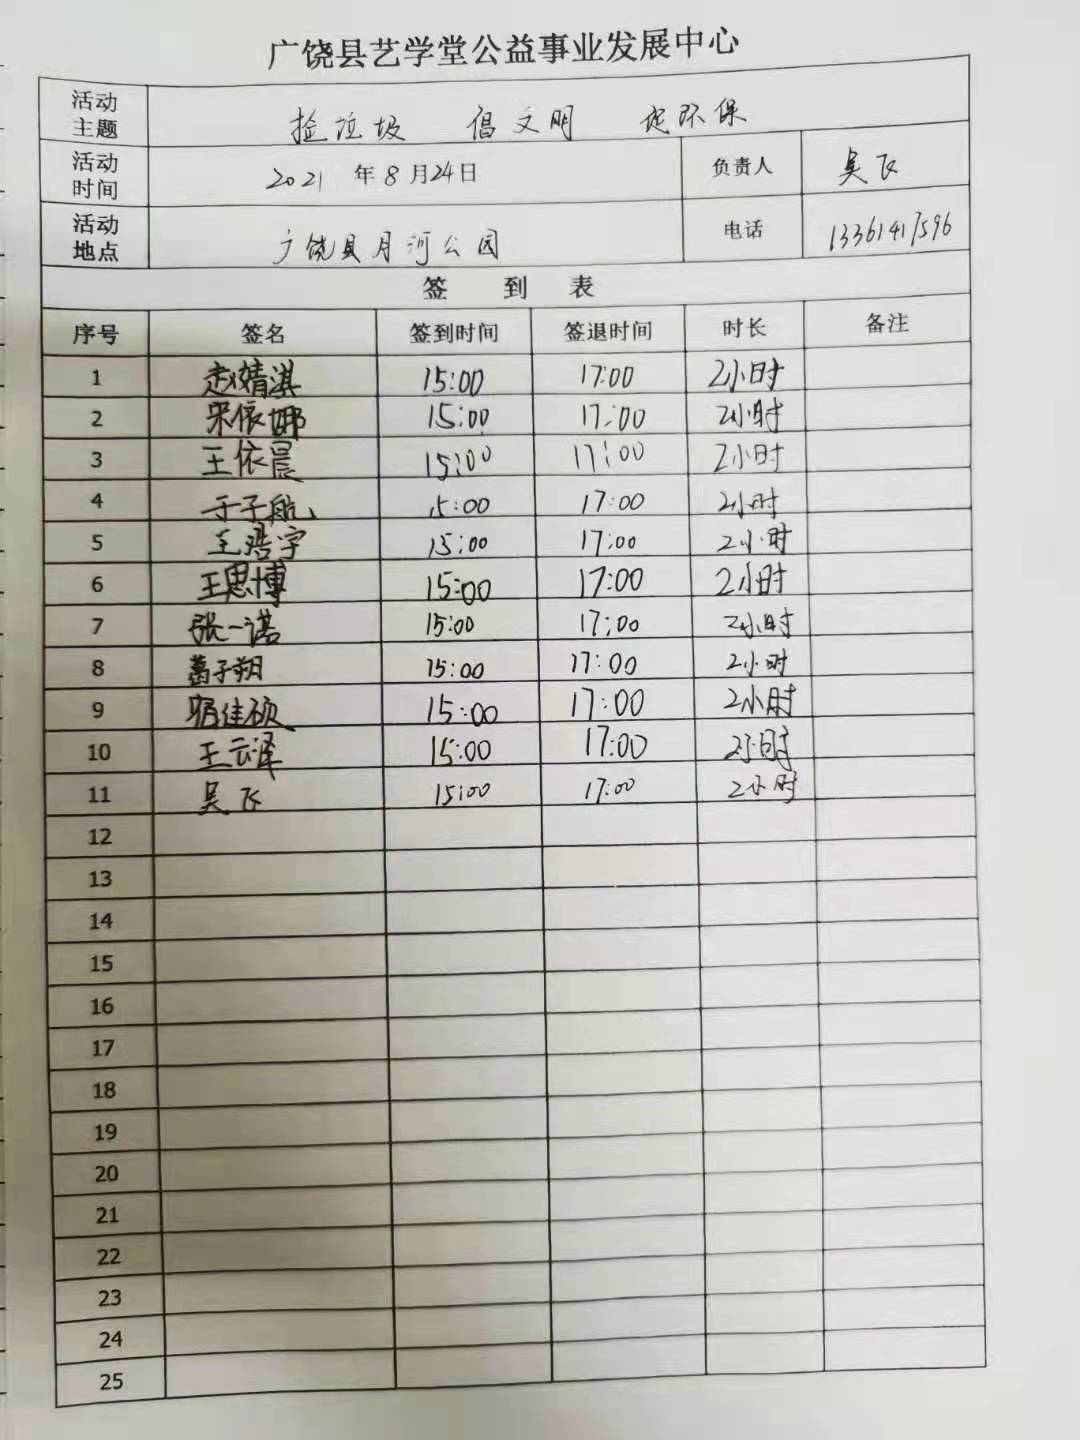 广饶县艺学堂公益事业发展中心
活动主题 捡垃圾 倡文明 促环保
活动时间 2021 年 8 月 24 日 负责人 吴飞
活动地点 广饶县月河公园 电话 13361417596
签 到 表
序号 签名 签到时间 签退时间 时长 备注
1 赵婧淇 15:00 17:00 2小时
2 宋依娜 15:00 17:00 2小时
3 王依晨 15:00 17:00 2小时
4 于子航 15:00 17:00 2小时
5 王浩宇 15:00 17:00 2小时
6 王思博 15:00 17:00 2小时
7 张一诺 15:00 17:00 2小时
8 葛子朔 15:00 17:00 2小时
9 15:00 17:00 2小时
10 王云泽 15:00 17:00 2小时
11 吴飞 15:00 17:00 2小时
12
13
14
15
16
17
18
19
20
21
22
23
24
25